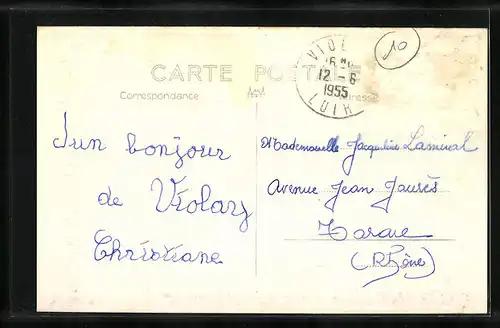 10
VIOL
16 H
12 - 6
1955
LOIR
CARTE POSTALE
Correspondance
Adresse
Un bonjour
de Violay
Christiane
Mademoiselle Jacqueline Laminal
Avenue Jean Jaurès
Tarare
(Rhône)